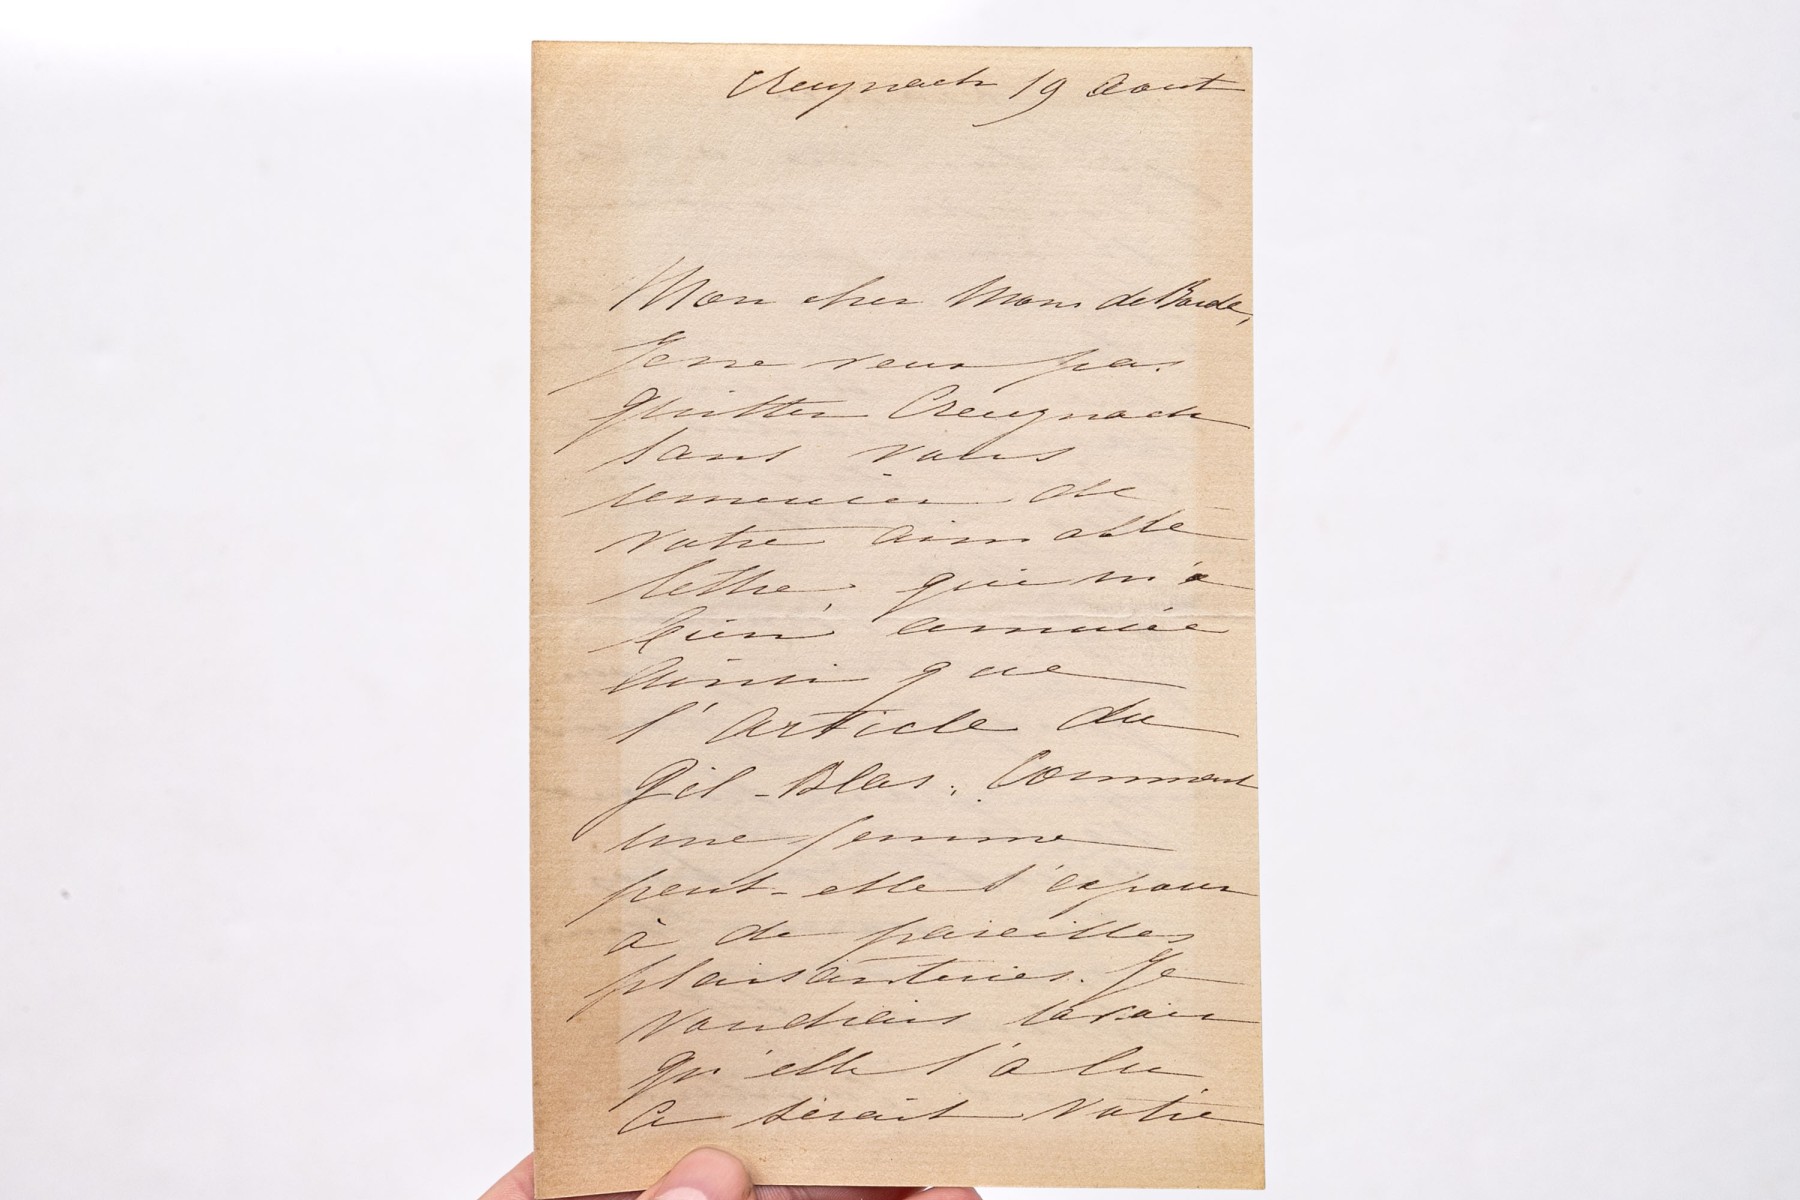 Creuznach 19 Aout
Mon cher Mons de Borda,
Je ne veux pas
quitter Creuznach
sans vous
remercier de
votre aimable
lettre, qui m'a
bien amusée
ainsi que
l'article du
Gil-Blas. Comment
une femme
peut-elle s'exposer
à de pareilles
plaisanteries. Je
voudrais savoir
qu'elle l'a lu
Ca serait votre